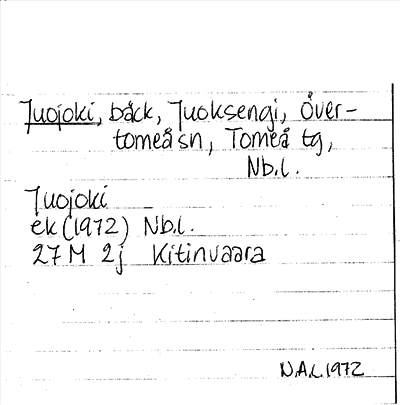 Juojoki, bäck, Juoksengi, Över-
torneå sn, Torneå tg,
Nb.l.
Juojoki
ek (1972) Nb.l.
27 M 2j Kitinvaara
N.Å.L. 1972